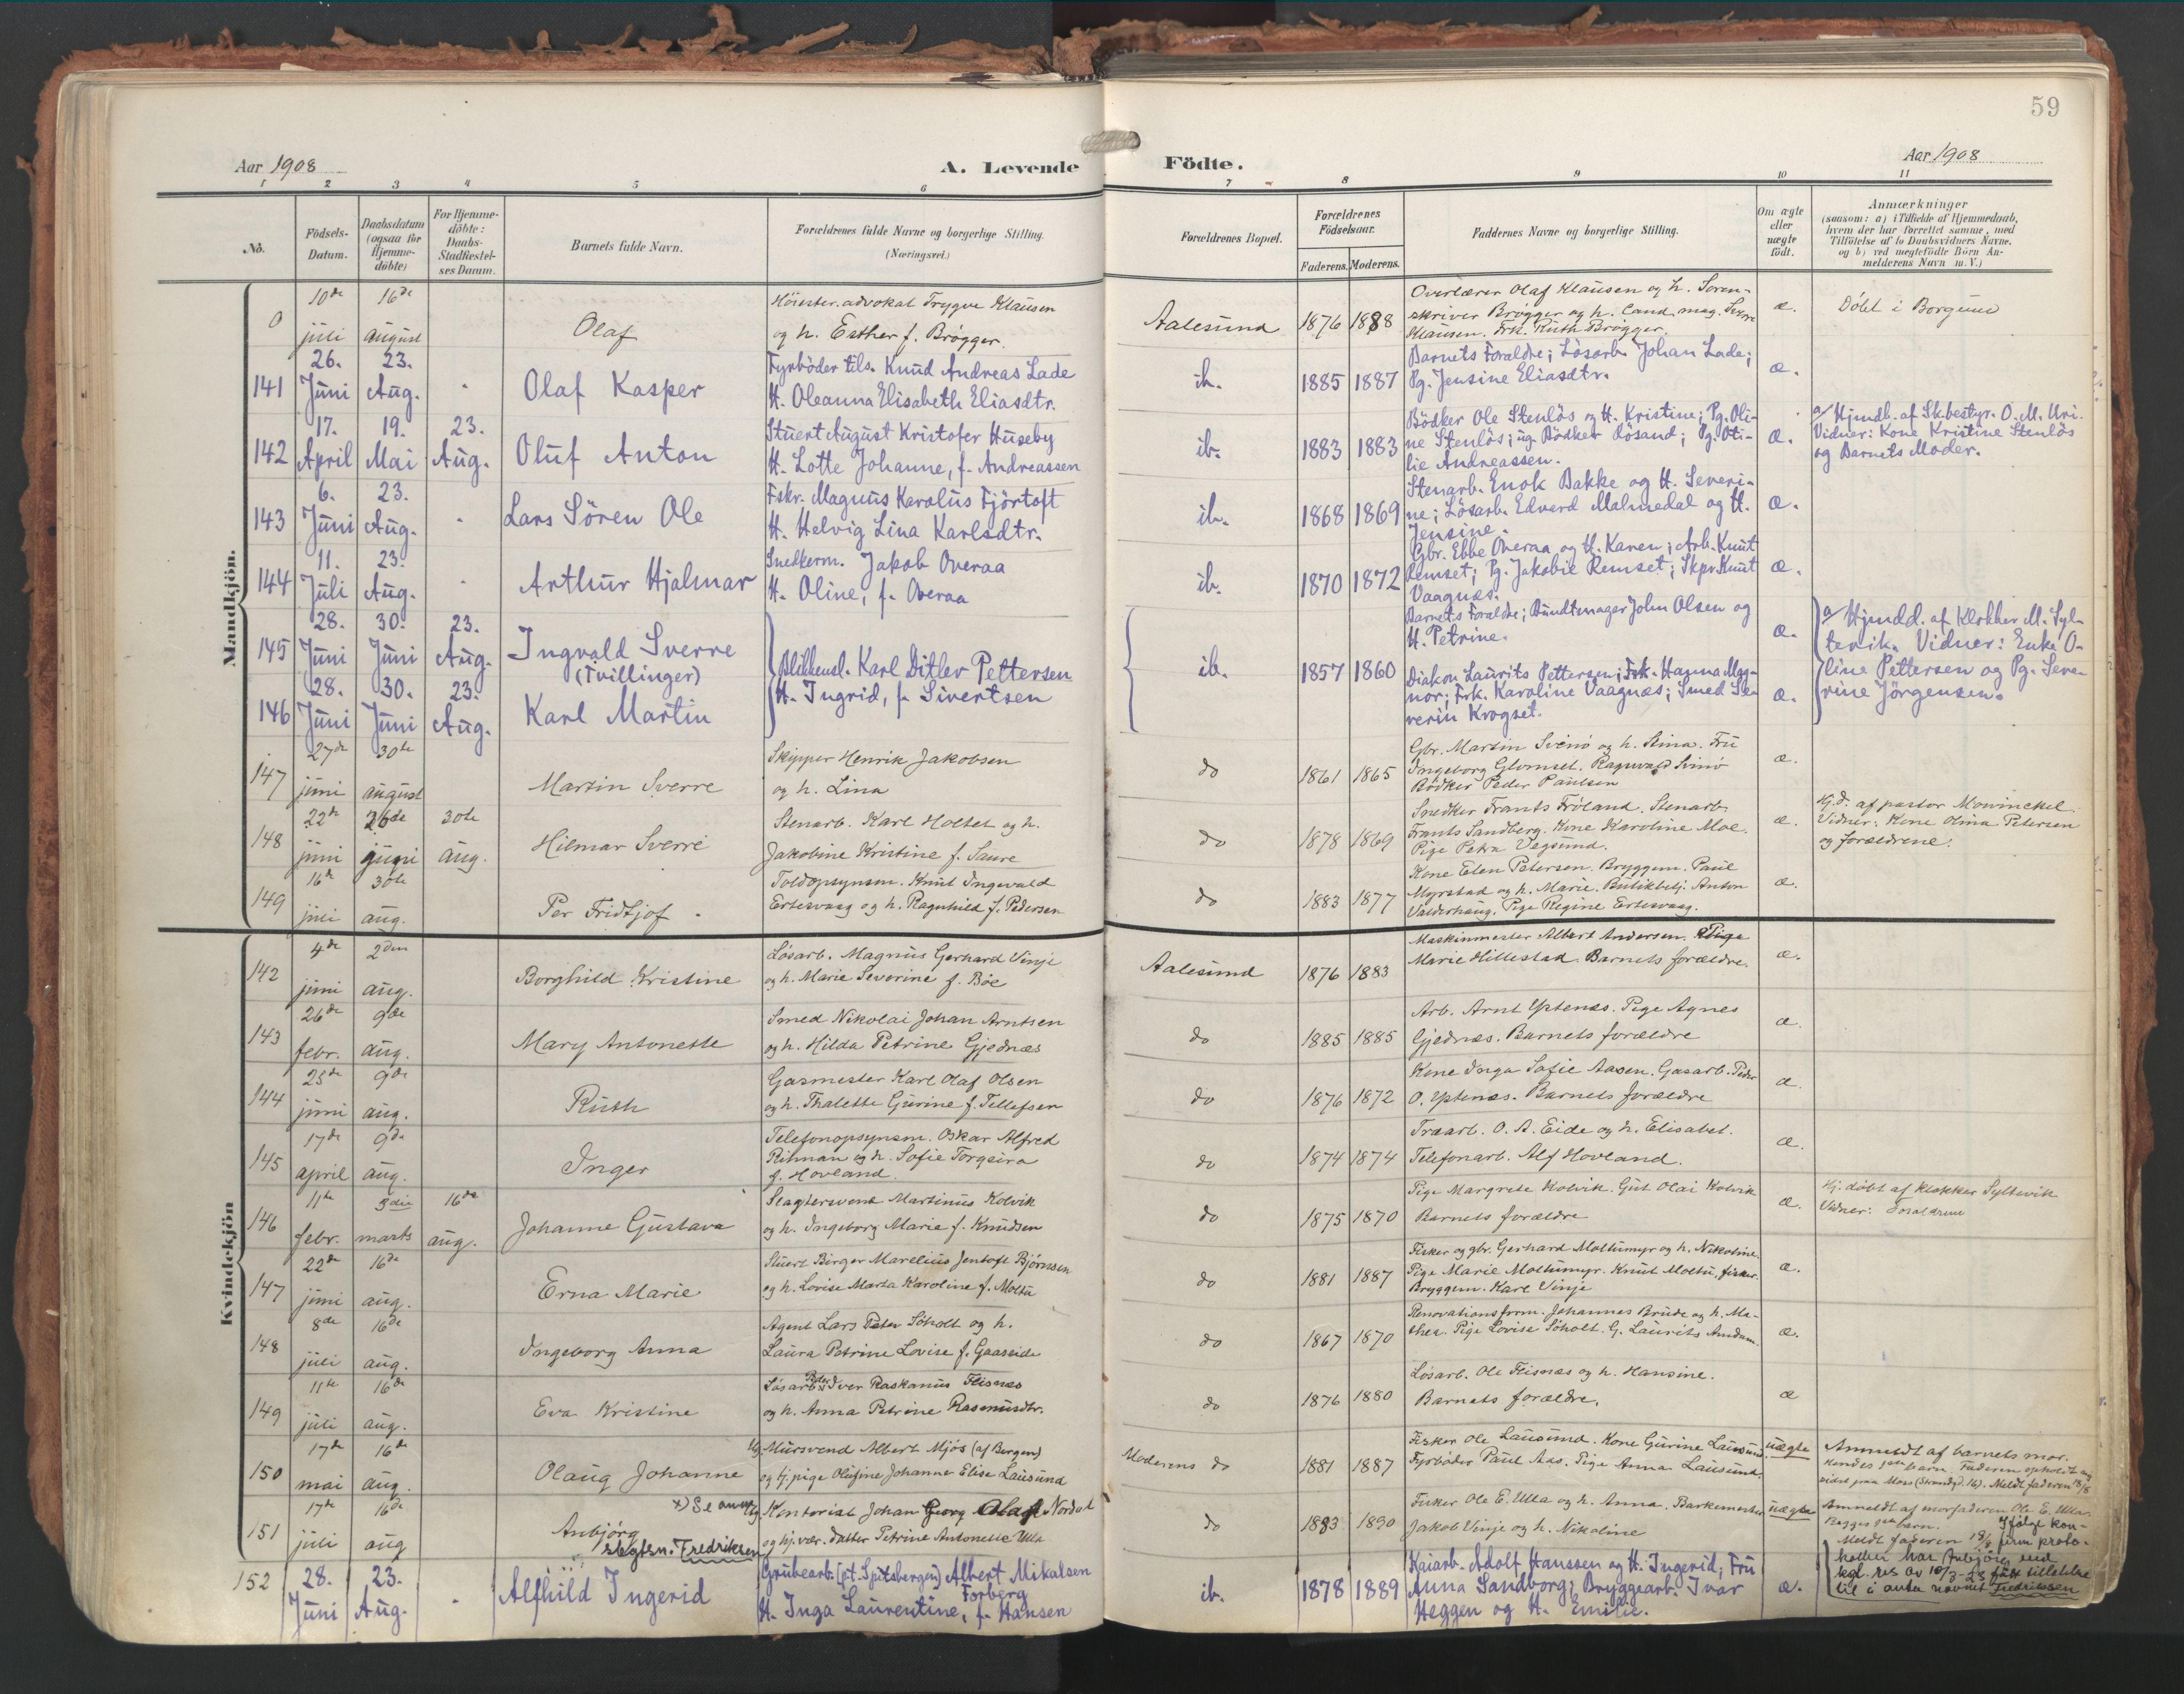 59
Aar 1908
A. Levende
Födte.
Aar 1908
1 2 3 4 5 6 7 8 9 10 11
No.
Födsels-
Datum.
Daabsdatum
(ogsaa for
Hjemme-
döbte)
For Hjemme-
döbte:
Daabs-
Stadfæstel-
ses Datum.
Barnets fulde Navn.
Forældrenes fulde Navne og borgerlige Stilling.
(Næringsvei.)
Forældrenes Bopæl.
Forældrenes
Födselsaar.
Faderens.
Moderens.
Faddernes Navne og borgerlige Stilling.
Om ægte
eller
uægte
födt.
Anmærkninger
(saasom: a) i Tilfælde af Hjemmedaab,
hvem der har forrettet samme, med
Tilföielse af to Daabsvidners Navne.
og b) ved uægtefödte Börn An-
melderens Navn m. V.)
Mandkjön.
0 10de juli 16de august
Olaf
Höiester.advokat Trygve Klausen
og h. Esther f. Brøgger.
Aalesund 1876 1888
Overlærer Olaf Klausen og h. Soren-
skriver Brøgger og h. Cand. mag. Sverre
Klausen. Frk. Ruth Brøgger.
æ.
Döbt i Borgund
141 26. Juni 23. Aug. -
Olaf Kasper
Fyrböder tils. Knud Andreas Lade
H. Oleanna Elisabeth Eliasdtr.
ib. 1885 1887
Barnets Forældre; Lösarb. Johan Lade;
Pg. Jensine Eliasdtr.
æ.
142 17. April 19. Mai 23. Aug.
Oluf Anton
Stuert August Kristofer Huseby
H. Lotte Johanne, f. Andreassen
ib. 1883 1883
Bödker Ole Stenlös og H. Kristine; Pg. Oli-
ne Stenlös; ug. Bödker Rösand; Pg. Oti-
lie Andreassen.
æ.
a/ Hjmdb. af Sk.bestyr. O. M. Uri.
Vidner: Kone Kristine Stenlös
og Barnets Moder.
143 6. Juni 23. Aug. -
Lars Sören Ole
Fskr. Magnus Karolus Fjörtoft
H. Helvig Lina Karlsdtr.
ib. 1868 1869
Stenarb. Enok Bakke og H. Severi-
ne; Lösarb. Edvard Malmedal og H.
Jensine.
æ.
144 11. Juli 23. Aug. -
Arthur Hjalmar
Snedkerm. Jakob Overaa
H. Oline, f. Overaa
ib. 1870 1872
Gbr. Ebbe Overaa og H. Karen; Arb. Knut
Remset; Pg. Jakobie Remset; Skpr. Knut
Vaagnæs.
æ.
145 28. Juni 30. Juni 23. Aug.
Ingvald Sverre
(Tvillinger)
Blikkensl. Karl Ditlev Pettersen
H. Ingrid, f. Sivertsen
ib. 1857 1860
Barnets Forældre; Bundtmager John Olsen og
H. Petrine.
æ.
a/ Hjmdd. af Klokker M. Syl-
tevik. Vidner: Enke O-
line Pettersen og Pg. Seve-
rine Jörgensen.
146 28. Juni 30. Juni 23. Aug.
Karl Martin
Diakon Laurits Pettersen; Frk. Hanna Mag-
nor; Frk. Karoline Vaagnæs; Smed Se-
verin Krogset.
æ.
147 27de juni 30te august
Martin Sverre
Skipper Henrik Jakobsen
og h. Lina
do 1861 1865
Gbr. Martin Svinö og h. Stina. Fru
Ingeborg Glomset. Ragnvald Svinö
Bödker Peder Paulsen
æ.
148 22de juni 26de juni 30te aug.
Hilmar Sverre
Stenarb. Karl Holtet og h.
Jakobine Kristine f. Saure
do 1878 1869
Snedker Frants Fröland. Stenarb.
Frants Sandberg. Kone Karoline Moe.
Pige Petra Vegsund.
æ.
Hj.d. af pastor Mowinckel.
Vidner: Kone Olina Petersen
og forældrene.
149 16de juli 30te aug.
Per Fridtjof
Toldopsynsm. Knut Ingevald
Ertesvaag og h. Ragnhild f. Pedersen
do 1883 1877
Kone Elen Petersen. Bryggem. Paul
Myrstad og h. Marie. Butikbetj. Anton
Valderhaug. Pige Regine Ertesvaag.
æ.
Kvindekjön
142 4de juni 2den aug.
Borghild Kristine
Løsarb. Magnus Gerhard Vinje
og h. Marie Severine f. Böe
Aalesund 1876 1883
Maskinmester Albert Andersen. Pige
Marie Hillestad. Barnets forældre.
æ.
143 26de febr. 9de aug.
Mary Antonette
Smed Nikolai Johan Arntsen
og h. Hilda Petrine Gjednæs
do 1885 1885
Arb. Arnt Yttenæs. Pige Agnes
Gjednæs. Barnets forældre
æ.
144 25de juni 9de aug.
Ruth
Gasmester Karl Olaf Olsen
og h. Thalette Gurine f. Tellefsen
do 1876 1872
Kone Inga Sofie Aasen. Gasarb. Peder
O. Yttenæs. Barnets forældre
æ.
145 17de april 9de aug.
Inger
Telefonopsynsm. Oskar Alfred
Ritman og h. Sofie Torgeira
f. Hovland.
do 1874 1874
Træarb. O. A. Eide og h. Elisabet.
Telefonarb. Alf Hovland.
æ.
146 11te febr. 3die marts 16de aug.
Johanne Gustava
Slagtersvend Martinus Kolvik
og h. Ingeborg Marie f. Knudsen
do 1875 1870
Pige Margrete Kolvik. Gut Olai Kolvik
Barnets forældre
æ.
Hj. döbt af klokker Syltevik
Vidner: Forældrene
147 22de juni 16de aug.
Erna Marie
Stuert Birger Marelius Jentoft Björnsen
og h. Lovise Marta Karoline f. Moltu
do 1881 1887
Fisker og gbr. Gerhard Moltumyr og h. Nikoline.
Pige Marie Moltumyr. Knut Moltu, fisker.
Bryggem. Karl Vinje
æ.
148 8de juli 16de aug.
Ingeborg Anna
Agent Lars Peter Söholt og h.
Laura Petrine Lovise f. Gaaseide
do 1867 1870
Renovationsform. Johannes Brude og h. Ma-
thea. Pige Lovise Söholt. G. Laurits Amdam.
æ.
149 11te juli 16de aug.
Eva Kristine
Løsarb. Peder Iver Raskanus Flisnæs
og h. Anna Petrine Rasmusdtr.
do 1876 1880
Løsarb. Ole Flisnæs og h. Hansine.
Barnets forældre.
æ
150 17de mai 16de aug.
Olaug Johanne
Ug. Mursvend Albert Mjös (af Bergen)
og tj.pige Olufine Johanne Elise Lausund
Moderens do 1881 1887
Fisker Ole Lausund. Kone Gurine Lausund.
Fyrböder Paul Aas. Pige Anna Lausund.
uægte
Anmeldt af barnets mor.
Hendes 1ste barn. Faderen opholdt sig
sidst paa Moss (Strandgd. 16). Meldt faderen 18/8
151 17de juli 16de aug
Anbjörg
x) Se anm.
slegtsn. Fredriksen
Ug. Kontorist Johan Georg Olaf Nordal
og hj.vær. datter Petrine Antonette Ulla
do 1883 1890
Fisker Ole E. Ulla og h. Anna. Barkemester
Jakob Vinje og h. Nikoline
uægte
Anmeldt af morfaderen Ole E. Ulla.
Begges 1ste barn.
Meldt faderen 18/8
Ifölge kon-
firm. proto-
kollen har Anbjörg ved
kgl. res av 10/3-23 fått tillatelse
til å anta navnet Fredriksen
152 28. Juni 23. Aug. -
Alfhild Ingerid
Grubearb. (pt. Spitsbergen) Albert Mikalsen
Forberg
H. Inga Laurentine, f. Hansen
ib. 1878 1889
Kaiarb. Adolf Hanssen og H. Ingerid; Fru
Anna Sandborg; Bryggearb. Ivar
Heggen og H. Emilie.
æ.